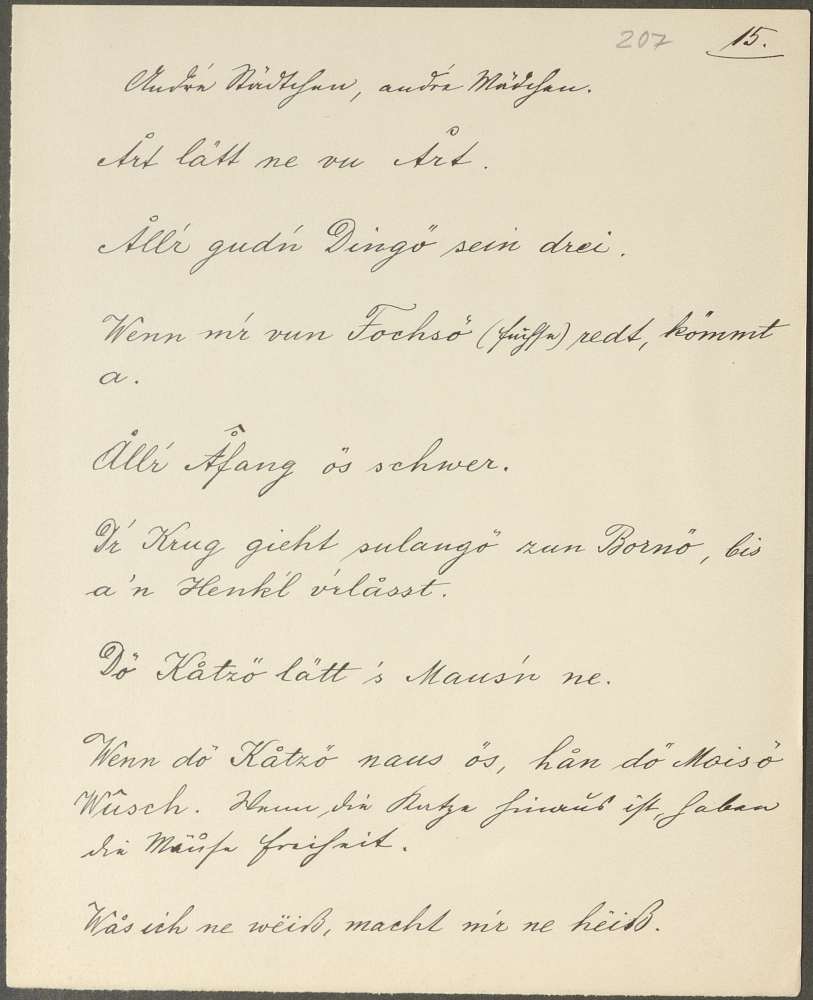 207 15.
Andre Städtchen, andre Mädchen.
Årt lätt ne vu Årt.
Ållr̓ gudn̓ Dingö sein drei.
Wenn mr̓ vun Fochsö (Füchse) redt, kömmt
a.
Ållr̓ Åfang ös schwer.
Dr̓ Krug gieht sulangö zun Bornö, bis
a'n Henkl̓ vr̓låsst.
Dö Kåtzö lätt 's Mausn̓ ne.
Wenn dö Kåtzö naus ös, hån dö Moisö
Wûsch. Wenn die Katze hinaus ist, haben
die Mäuse Freiheit.
Wås ich ne wëiß, macht mr̓ ne hëiß.